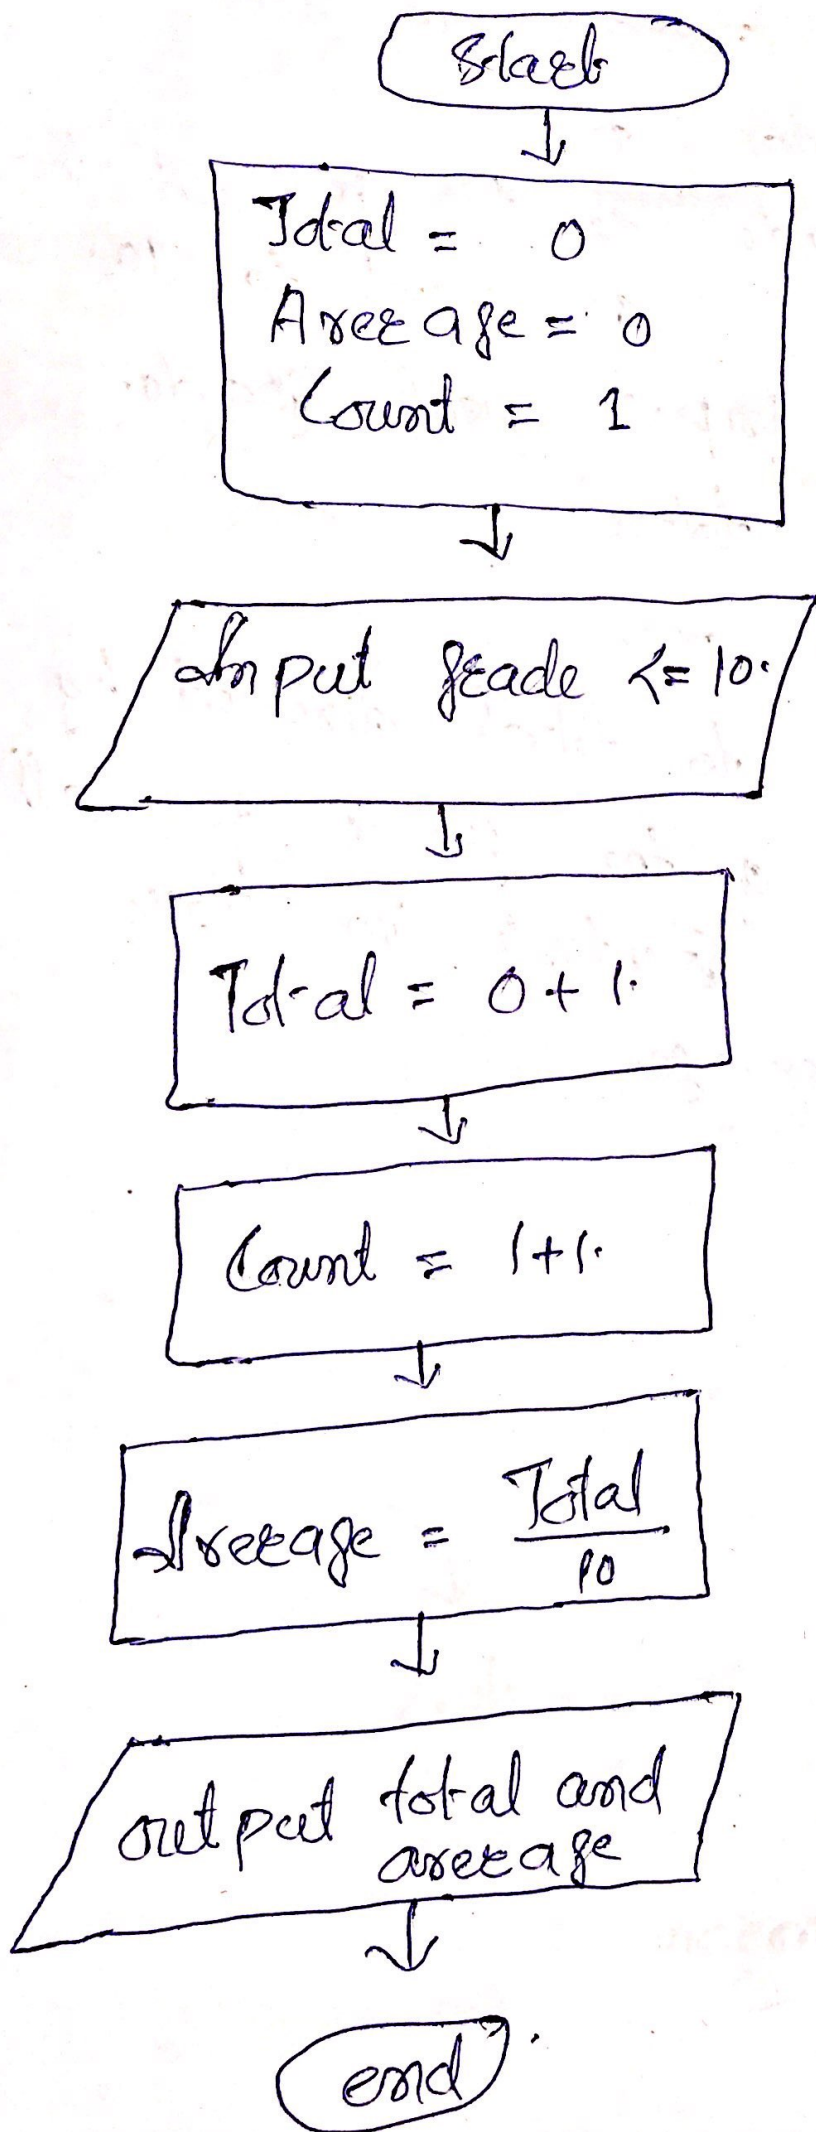 Start
Total = 0
Average = 0
Count = 1
Input grade <= 10.
Total = 0 + 1.
Count = 1+1.
Average = Total
10
output total and
average
end